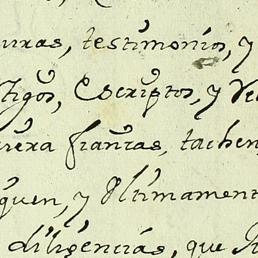 uras, testimonios, y
tigos, Escriptos, y Ve
era fianzas, tachen,
quen, y Ultimament
diligencias, que